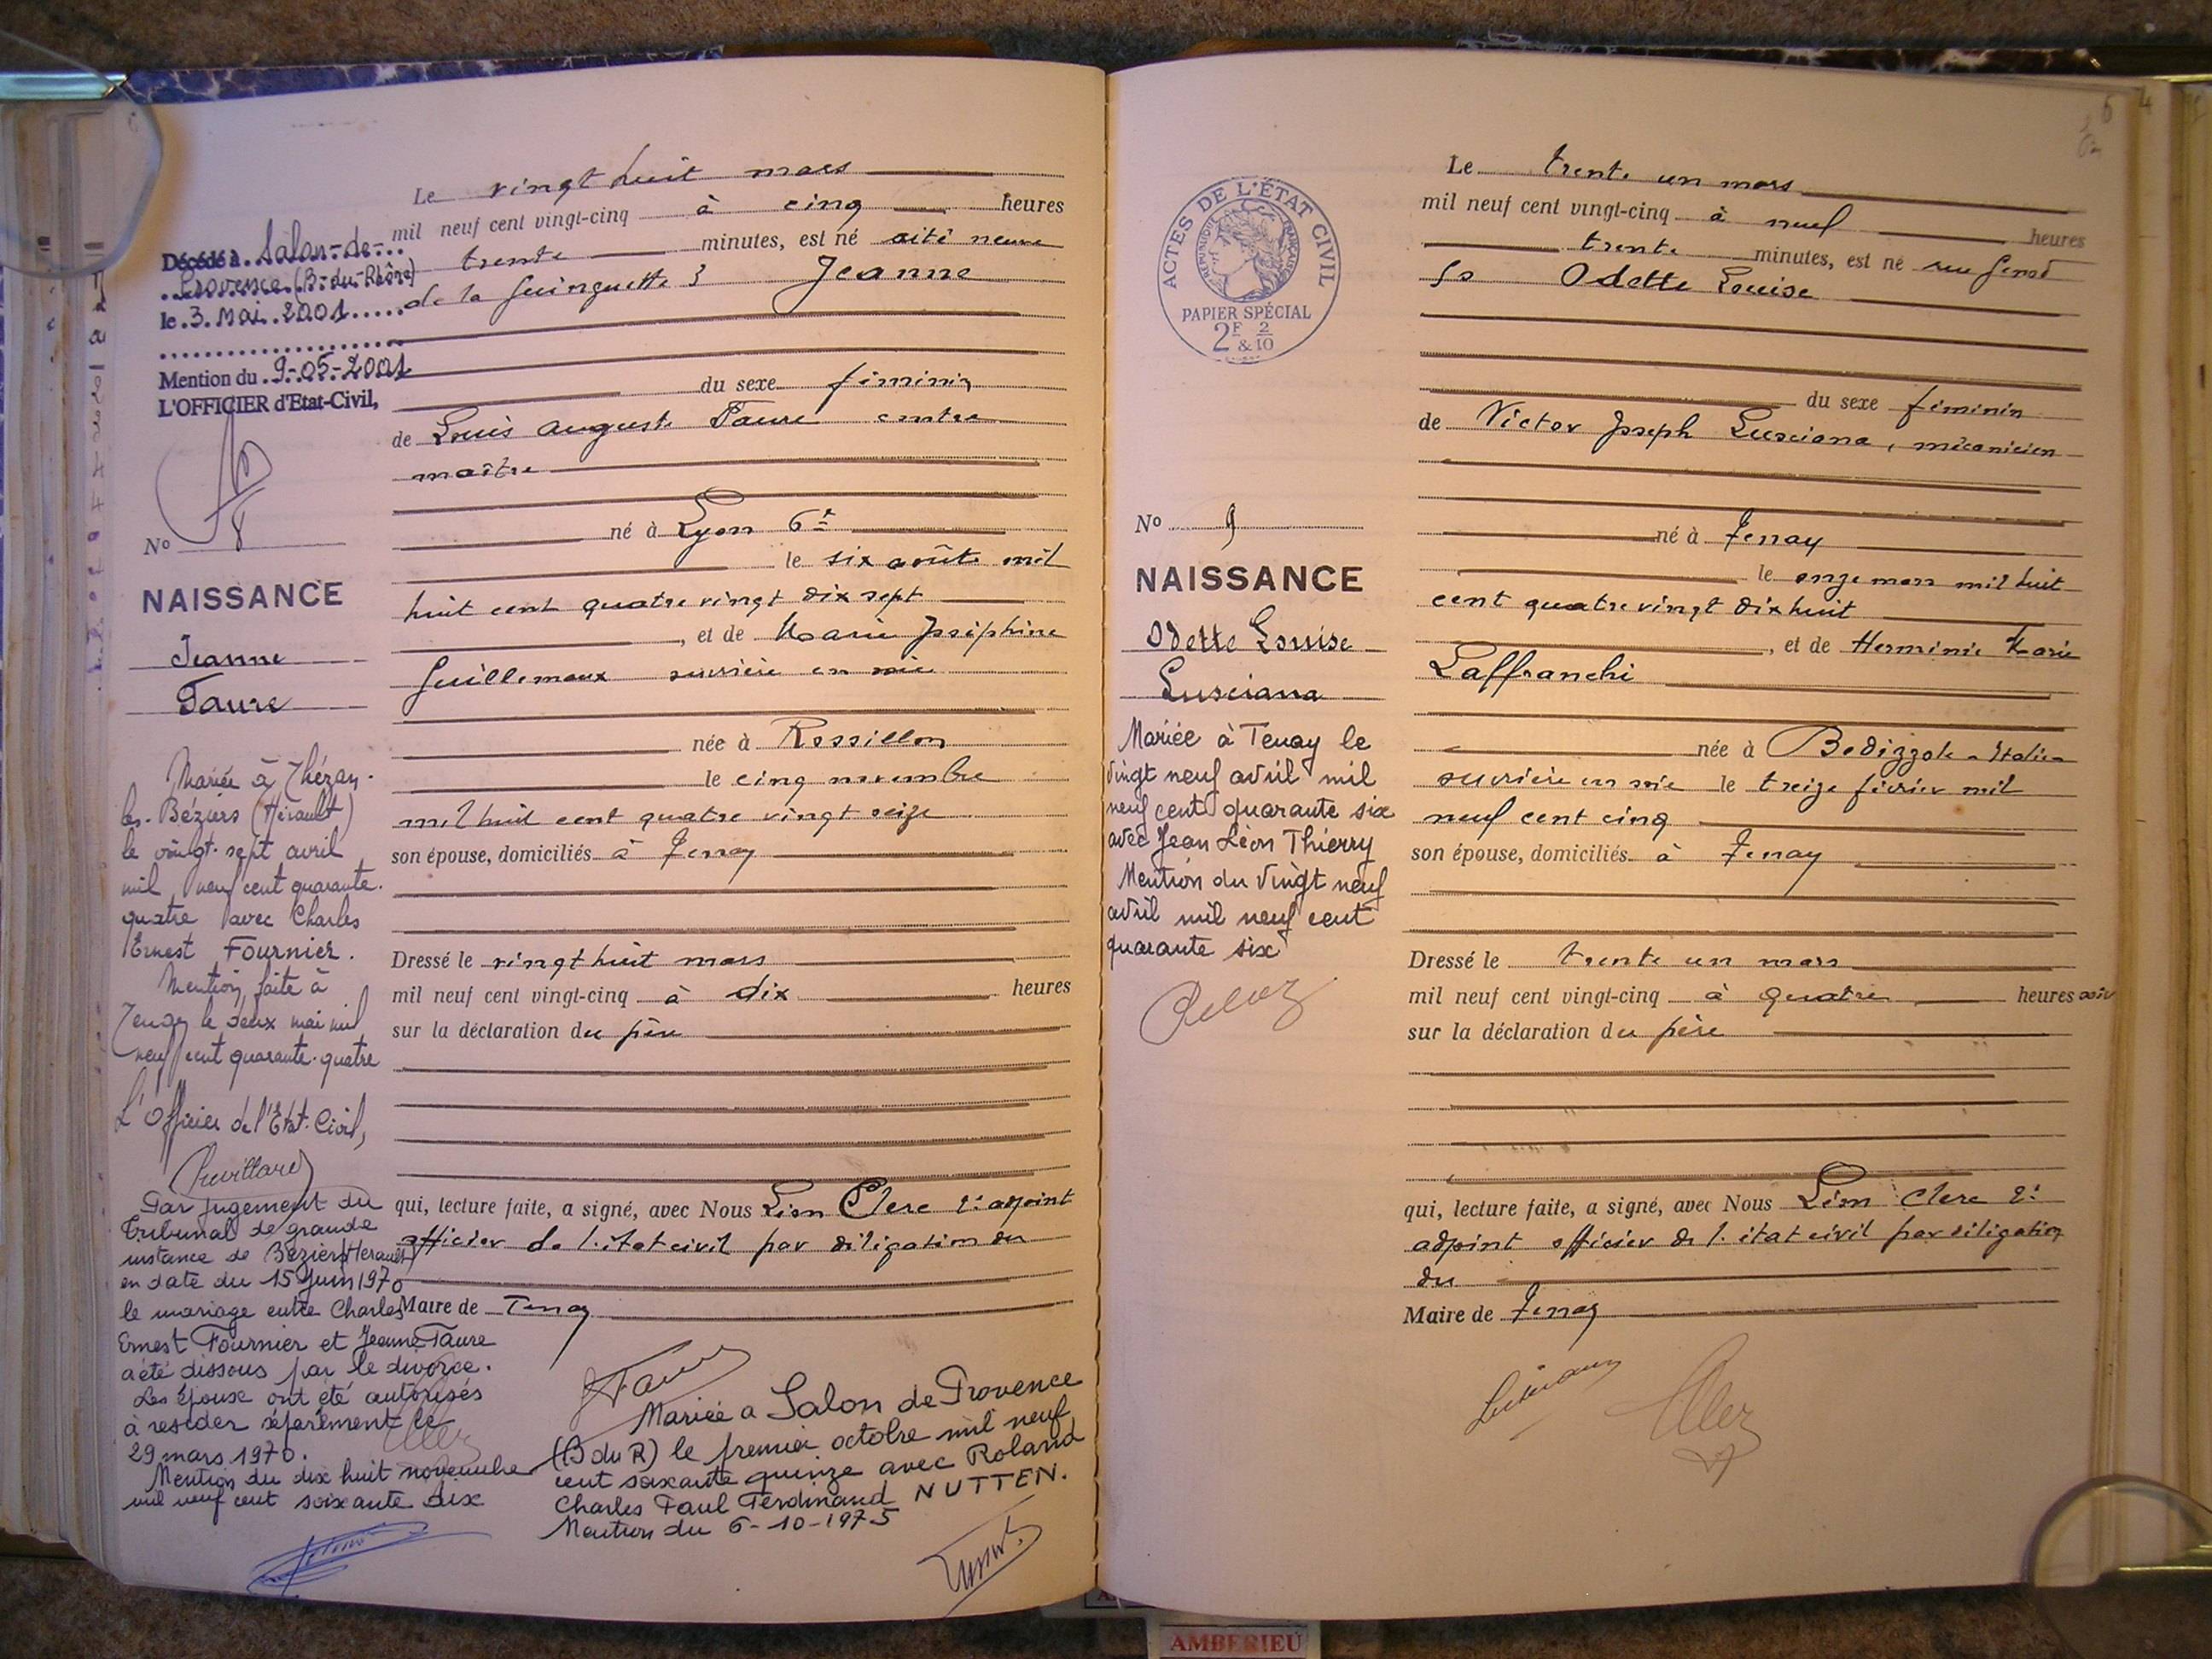 Le vingt huit mars
mil neuf cent vingt-cinq à cinq heures
trente minutes, est né cité neuve
de la Guinguette 3 Jeanne
du sexe féminin
de Louis Auguste Faure contre
maître
né à Lyon 6e
le six août mil
huit cent quatre vingt dix sept
, et de Marie Joséphine
Guillemaux ouvrière en soie
née à Rossillon
le cinq novembre
mil huit cent quatre vingt seize
son épouse, domiciliés à Tenay
Dressé le vingt huit mars
mil neuf cent vingt-cinq à dix heures
sur la déclaration du père
qui, lecture faite, a signé, avec Nous Léon Clerc 2e adjoint
officier de l'état civil par délégation du
Maire de Tenay
Décédé à Salon-de-
Provence (B-du-Rhône)
le 3 Mai 2001
Mention du 9-05-2001
L'OFFICIER d'Etat-Civil,
No 8
NAISSANCE
Jeanne
Faure
Mariée à Thézan-
les-Béziers (Hérault)
le vingt-sept avril
mil neuf cent quarante-
quatre avec Charles
Ernest Fournier.
Mention faite à
Tenay le deux mai mil
neuf cent quarante-quatre
L'Officier de l'Etat-Civil,
Par jugement du
Tribunal de grande
instance de Béziers (Herault)
en date du 15 Juin 1970
le mariage entre Charles
Ernest Fournier et Jeanne Faure
a été dissous par le divorce.
Les Epoux ont été autorisés
à resider séparément le
29 mars 1970.
Mention du dix huit novembre
mil neuf cent soixante dix
Faure
Mariée a Salon de Provence
(B du R) le premier octobre mil neuf
cent soixante quinze avec Roland
Charles Paul Ferdinand NUTTEN.
Mention du 6-10-1975
ACTES DE L'ÉTAT CIVIL
RÉPUBLIQUE FRANÇAISE
PAPIER SPÉCIAL
2F & 2/10
Le trente un mars
mil neuf cent vingt-cinq à neuf heures
trente minutes, est né rue Genod
50 Odette Louise
du sexe féminin
de Victor Joseph Lusciana, mécanicien
né à Tenay
le onze mars mil huit
cent quatre vingt dix huit
, et de Herminie Marie
Laffranchi
née à Bedizzole - Italie -
ouvrière en soie le treize février mil
neuf cent cinq
son épouse, domiciliés à Tenay
Dressé le trente un mars
mil neuf cent vingt-cinq à quatre heures soir
sur la déclaration du père
qui, lecture faite, a signé, avec Nous Léon Clerc 2e
adjoint officier de l'état civil par délégation
du
Maire de Tenay
No 9
NAISSANCE
Odette Louise
Lusciana
Mariée à Tenay le
vingt neuf avril mil
neuf cent quarante six
avec Jean Léon Thierry
Mention du vingt neuf
avril mil neuf cent
quarante six
AMBERIEU